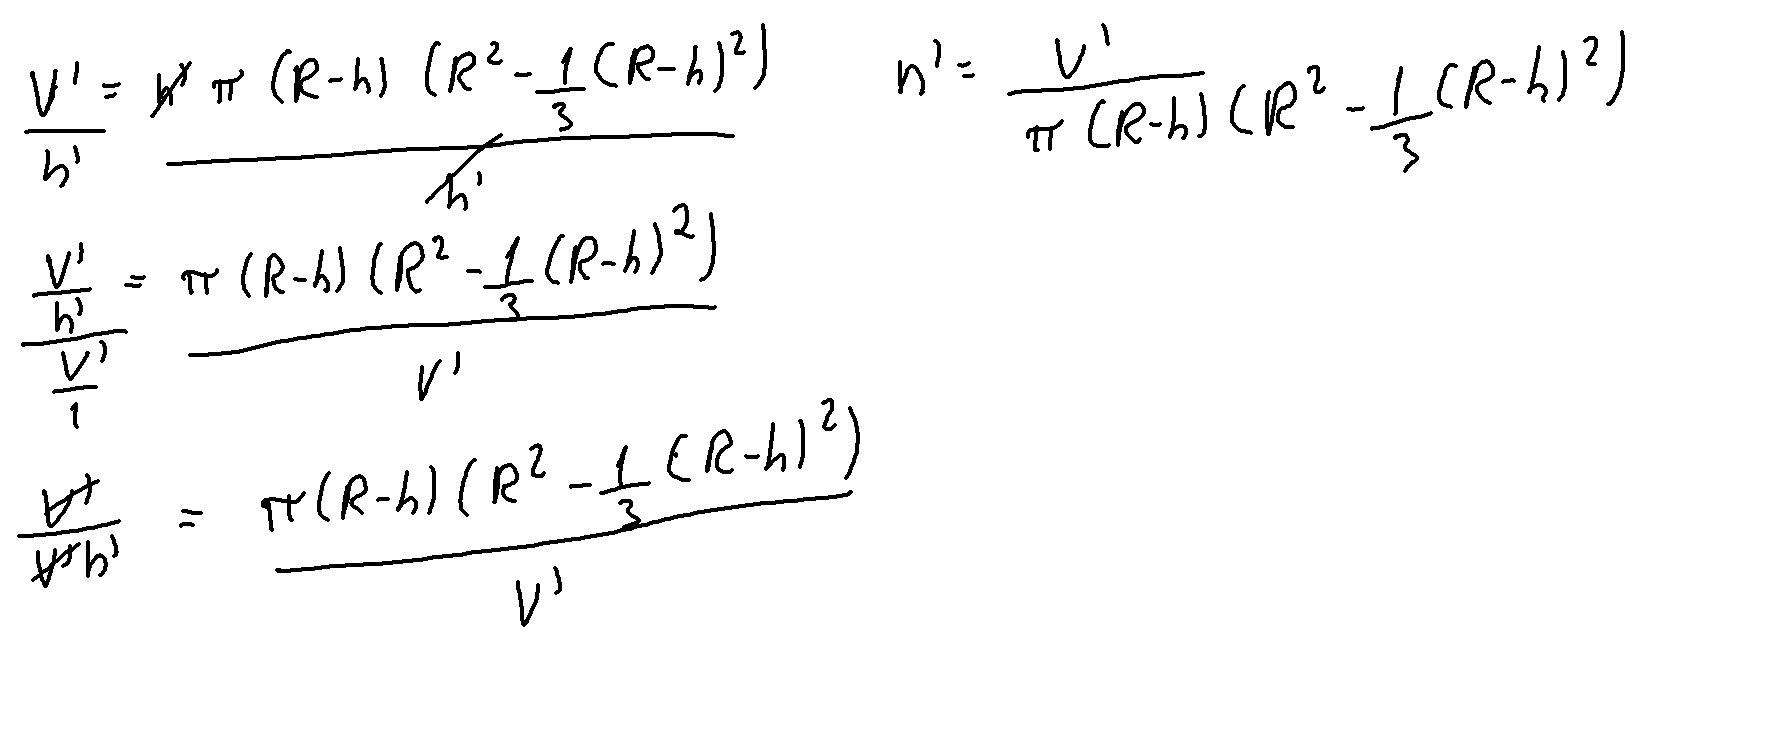 V'/h' = h' π (R-h) (R² - 1/3 (R-h)²) / h'
(V'/h')/(V'/1) = π (R-h) (R² - 1/3 (R-h)²) / V'
V'/(V'h') = π (R-h) (R² - 1/3 (R-h)²) / V'
h' = V' / π (R-h) (R² - 1/3 (R-h)²)